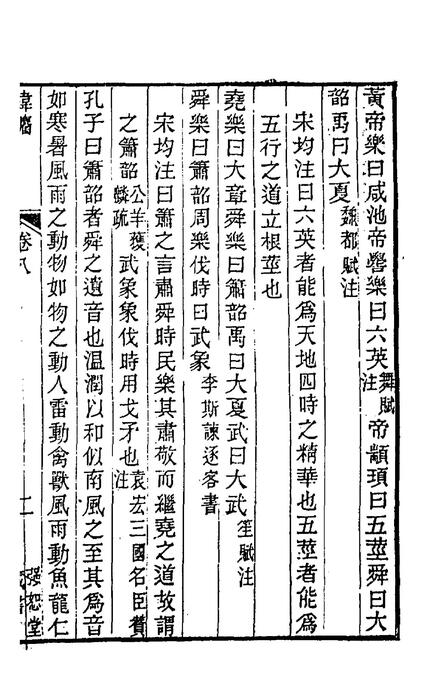 黃帝樂曰咸池帝嚳樂曰六英舞賦注帝顓頊曰五莖舜曰大
韶禹曰大夏魏都賦注
宋均注曰六英者能爲天地四時之精華也五莖者能爲
五行之道立根莖也
堯樂曰大章舜樂曰簫韶禹曰大夏武曰大武笙賦注
舜樂曰簫韶周樂伐時曰武象李斯諫逐客書
宋均注曰簫之言肅舜時民樂其肅敬而繼堯之道故謂
之簫韶公羊獲麟疏武象象伐時用戈矛也袁宏三國名臣贊注
孔子曰簫韶者舜之遺音也溫潤以和似南風之至其爲音
如寒暑風雨之動物如物之動人雷動禽獸風雨動魚龍仁
卷八
二